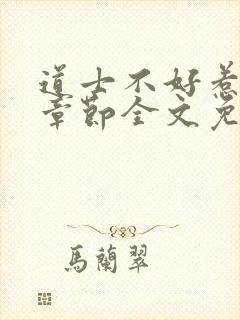 道士不好惹
章節全文免
馬蘭翠